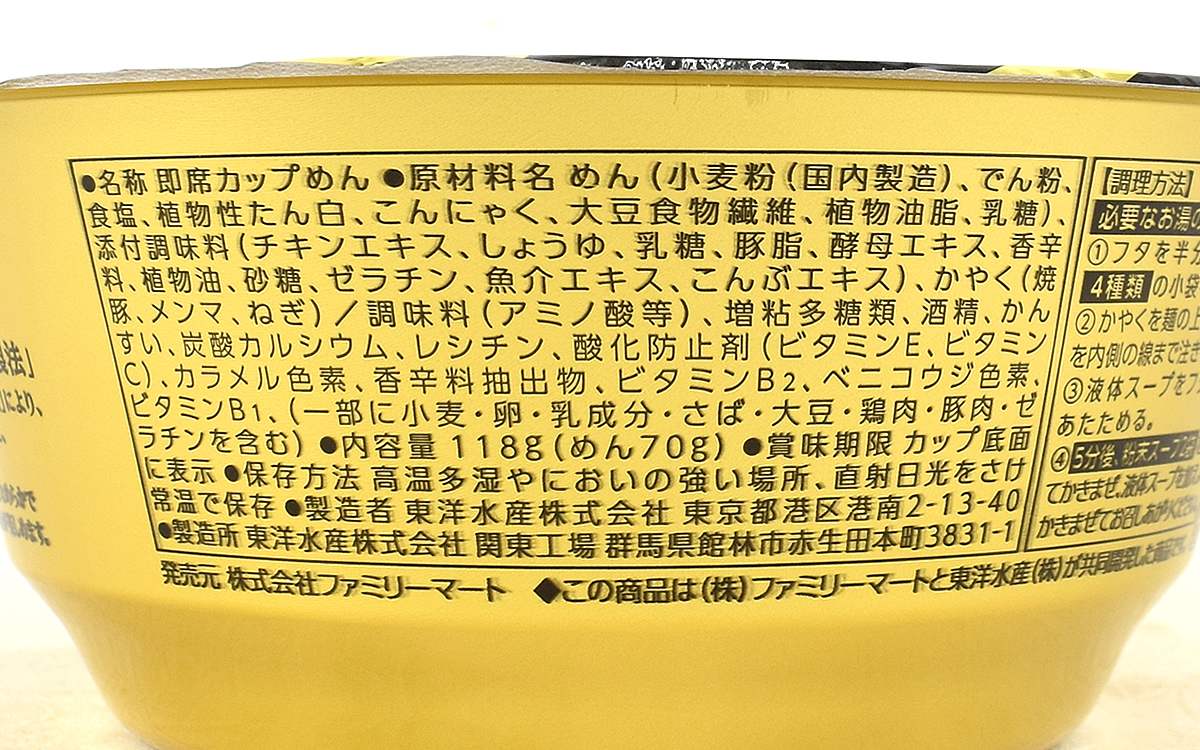 ●名称 即席カップめん ●原材料名 めん(小麦粉(国内製造)、でん粉、
食塩、植物性たん白、こんにゃく、大豆食物繊維、植物油脂、乳糖)、
添付調味料(チキンエキス、しょうゆ、乳糖、豚脂、酵母エキス、香辛
料、植物油、砂糖、ゼラチン、魚介エキス、こんぶエキス)、かやく(焼
豚、メンマ、ねぎ)/調味料(アミノ酸等)、増粘多糖類、酒精、かん
すい、炭酸カルシウム、レシチン、酸化防止剤(ビタミンE、ビタミン
C)、カラメル色素、香辛料抽出物、ビタミンB2、ベニコウジ色素、
ビタミンB1、(一部に小麦・卵・乳成分・さば・大豆・鶏肉・豚肉・ゼ
ラチンを含む) ●内容量 118g(めん70g) ●賞味期限 カップ底面
に表示 ●保存方法 高温多湿やにおいの強い場所、直射日光をさけ
常温で保存 ●製造者 東洋水産株式会社 東京都港区港南2-13-40
●製造所 東洋水産株式会社 関東工場 群馬県館林市赤生田本町3831-1
発売元 株式会社ファミリーマート ◆この商品は(株)ファミリーマートと東洋水産(株)が共同開発した商品です
【調理方法】
必要なお湯
①フタを半分
4種類の小袋
②かやくを麺の上
を内側の線まで注き
③液体スープをフ
あたためる。
④5分後、粉末スープ
てかきまぜ、液体スープを
かきまぜてお召しあがりください
製法」
により、